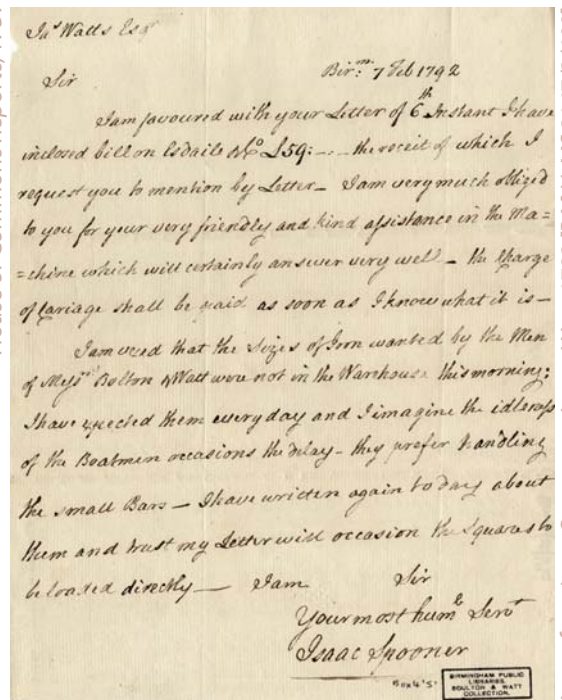 Jas Watts Esqr
Birm: 7 Feb 1792
Sir
I am favoured with your Letter of 6th Instant I have
inclosed bill on Esdaile & Co £59: -. - the receit of which I
request you to mention by Letter - I am very much obliged
to you for your very friendly and kind assistance in the Ma=
=chine which will certainly answer very well - the Charge
of Cariage shall be paid as soon as I know what it is -
I am vexed that the Sizes of Iron wanted by the Men
of Messrs Bolton & Watt were not in the Warehouse this morning:
I have expected them every day and I imagine the idleness
of the Boatmen occasions the delay - they prefer handling
the small Bars - I have written again to day about
them and trust my Letter will occasion the Squares to
be loaded directly - I am Sir
Your most humle Servt
Isaac Spooner
Box 4 'S'
BIRMINGHAM PUBLIC
LIBRARIES
BOULTON & WATT
COLLECTION.